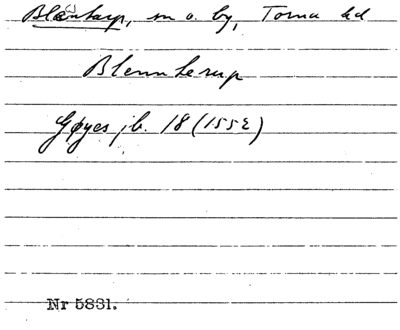 Blentarp, sn o. by, Torna hd
Blennterup
Gøyes jb. 18 (1552)
Nr 5831.